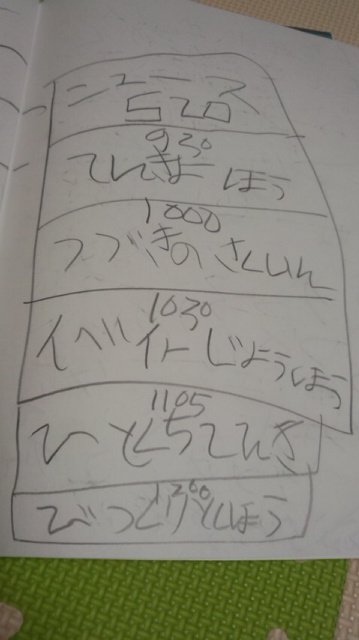 ニュース
520
930
てんきよほう
1000
つづきのさくいん
1030
イベントじょうほう
1105
ひとくちてんき
1200
びっくりとくほう